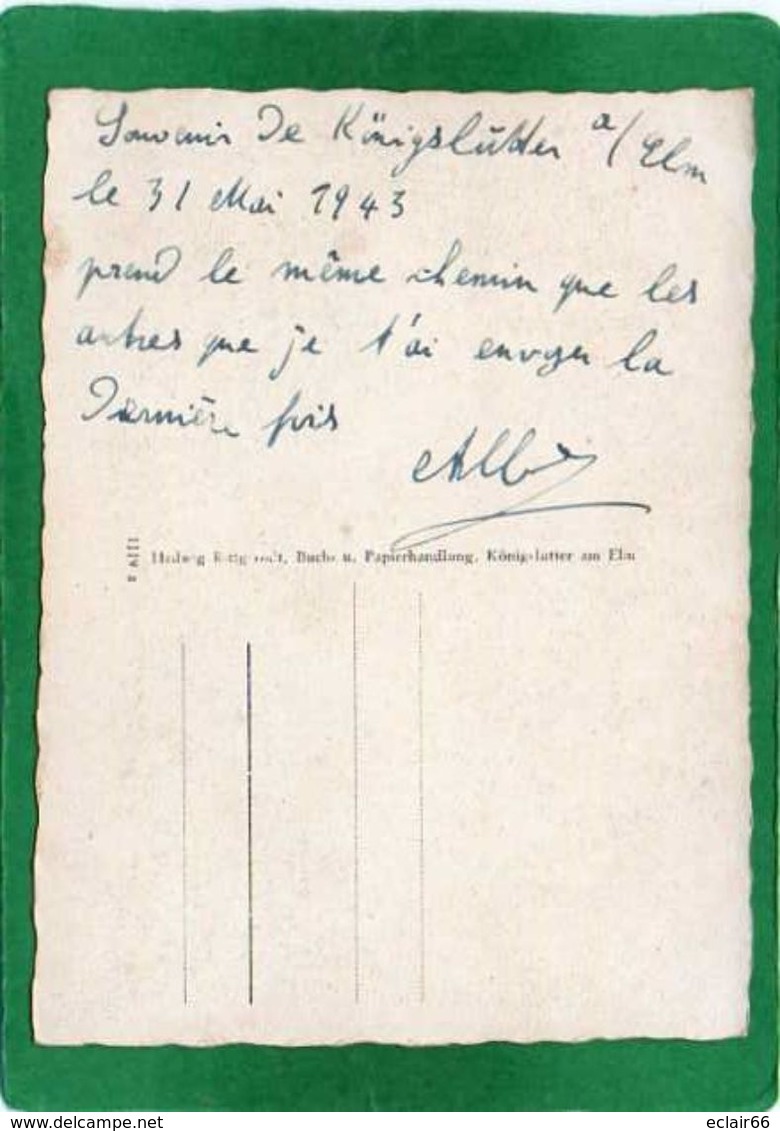 Souvenir De Königslütter a/Elm
le 31 Mai 1943
prend le même chemin que les
autres que je t'ai envoyer la
Dernière fois
Hedwig Buch- u. Papierhandlung, Königslutter am Elm
eclair66